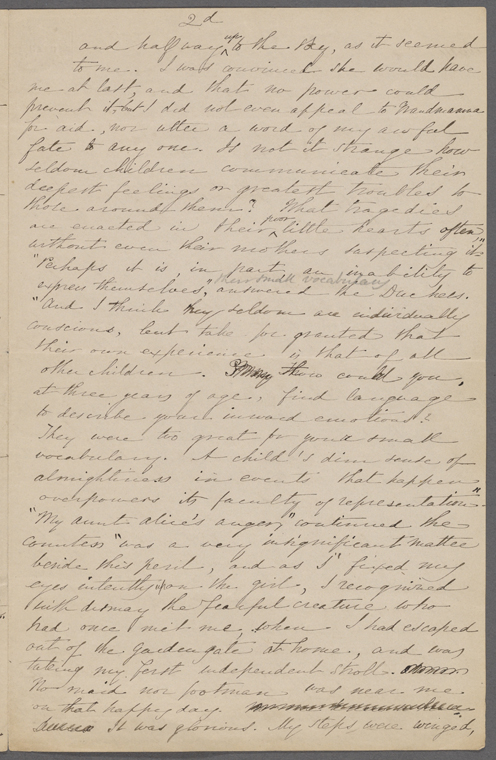 2d
and halfway up to the sky, as it seemed
to me. I was convinced she would have
me at last, and that no power could
prevent it, but I did not even appeal to Grandmamma
for aid, nor utter a word of my awful
fate to any one. Is not it strange how
seldom children communicate their
deepest feelings or greatest troubles to
those around them? What tragedies
are enacted in their poor little hearts often
without even their mothers suspecting it"
"Perhaps it is, in part an inability to
their small vocabulary
express themselves," answered the Duchess.
"And I think they seldom are individually
conscious, but take for granted that
their own experience is that of all
other children. how could you,
at three years of age, find language
to describe your inward emotions?
They were too great for your small
vocabulary. A child's dim sense of
almightiness in events that happen
overpowers its faculty of representation"
"My aunt Alice's anger," continued the
countess "was a very insignificant matter
beside this peril, and as I fixed my
eyes intently upon the girl, I recognized
with dismay the fearful creature who
had once met me, when I had escaped
out of the garden gate at home, and was
taking my first independent stroll.
No maid nor footman was near me
on that happy day.
It was glorious. My steps were winged,